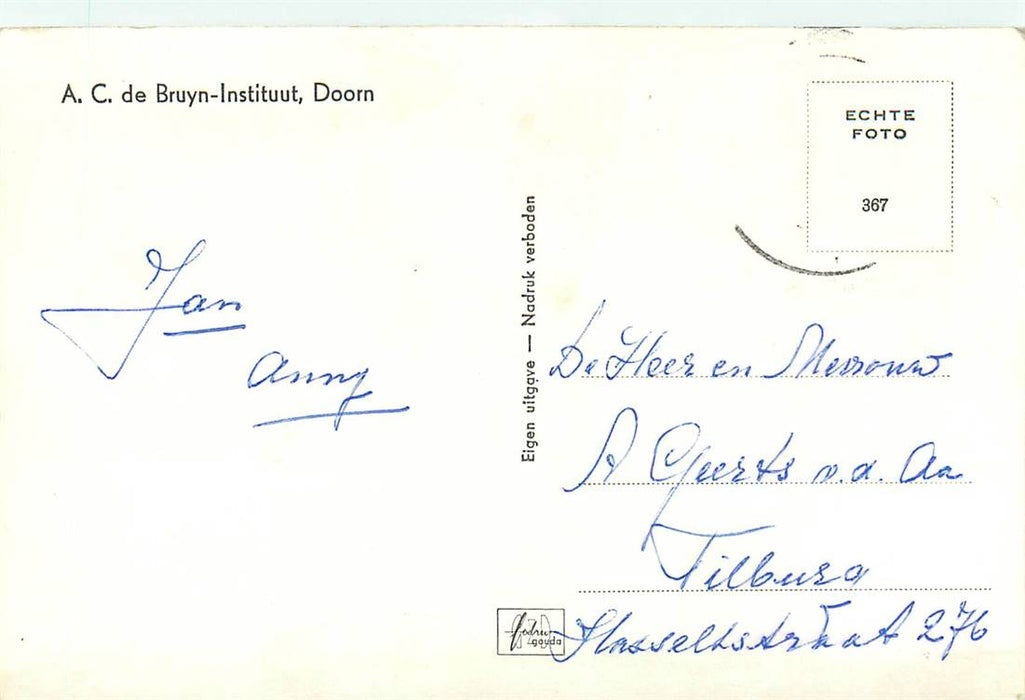 A. C. de Bruyn-Instituut, Doorn
ECHTE
FOTO
367
Jan
Anny
Eigen uitgave — Nadruk verboden
De Heer en Mevrouw
A Geerts v.d. Aa
Tilburg
Hasseltstraat 276
gouda